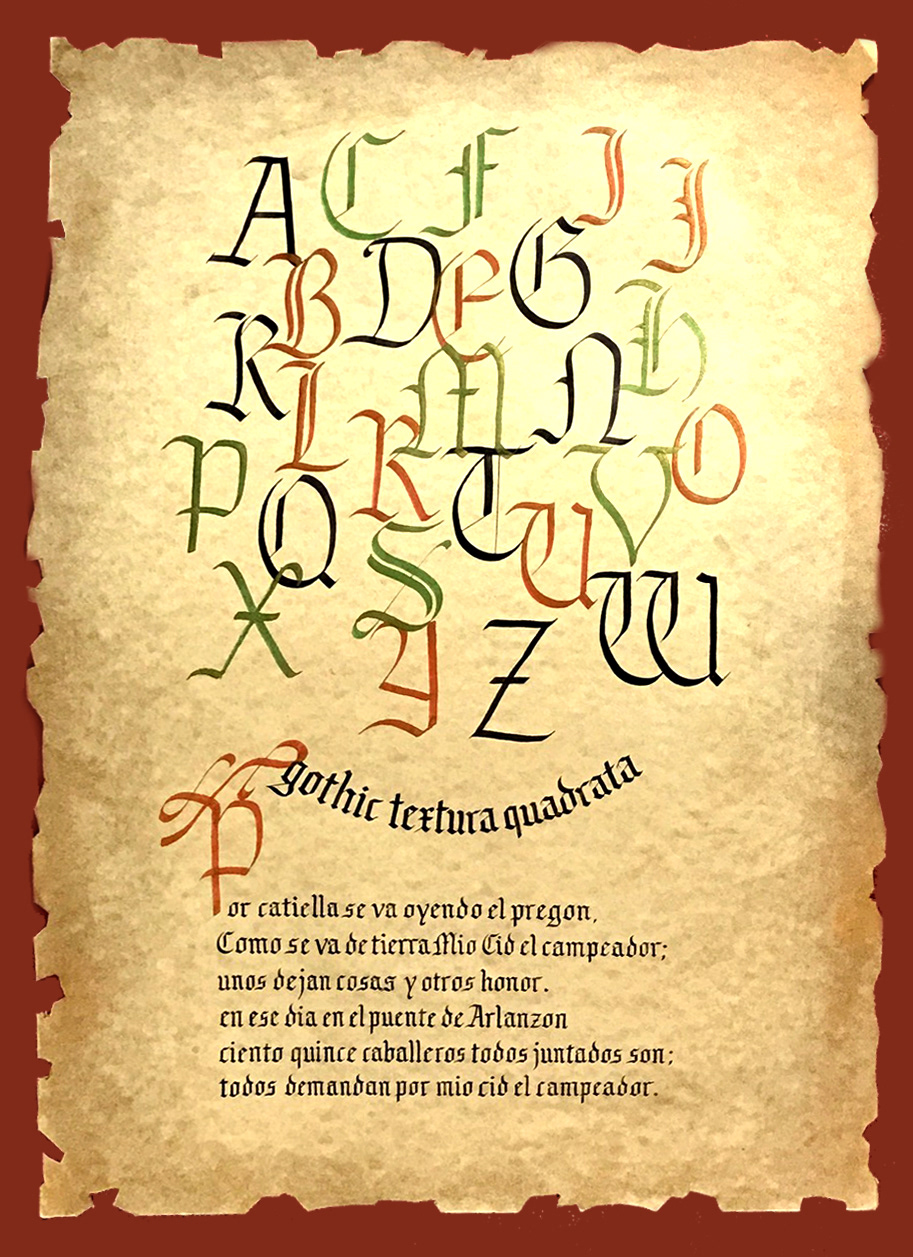 A C F I J
B D E G H
K L M N O
P Q R T U V
X S Y Z W
gothic textura quadrata
Por catiella se va oyendo el pregon,
Como se va de tierra Mio Cid el campeador;
unos dejan cosas y otros honor.
en ese dia en el puente de Arlanzon
ciento quince caballeros todos juntados son;
todos demandan por mio cid el campeador.